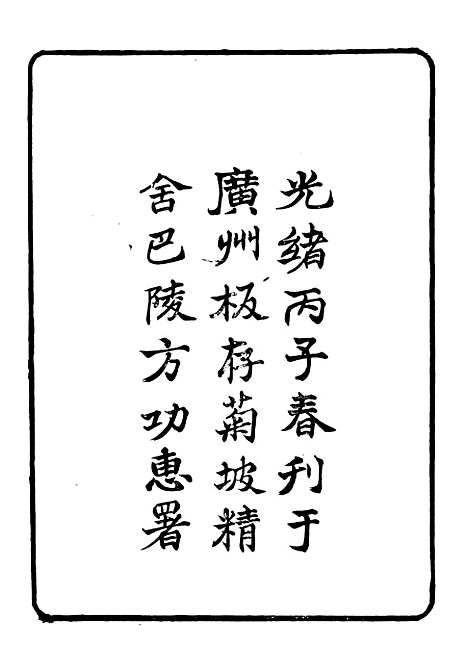 光緒丙子春刊于
廣州板存菊坡精
舍巴陵方功惠署